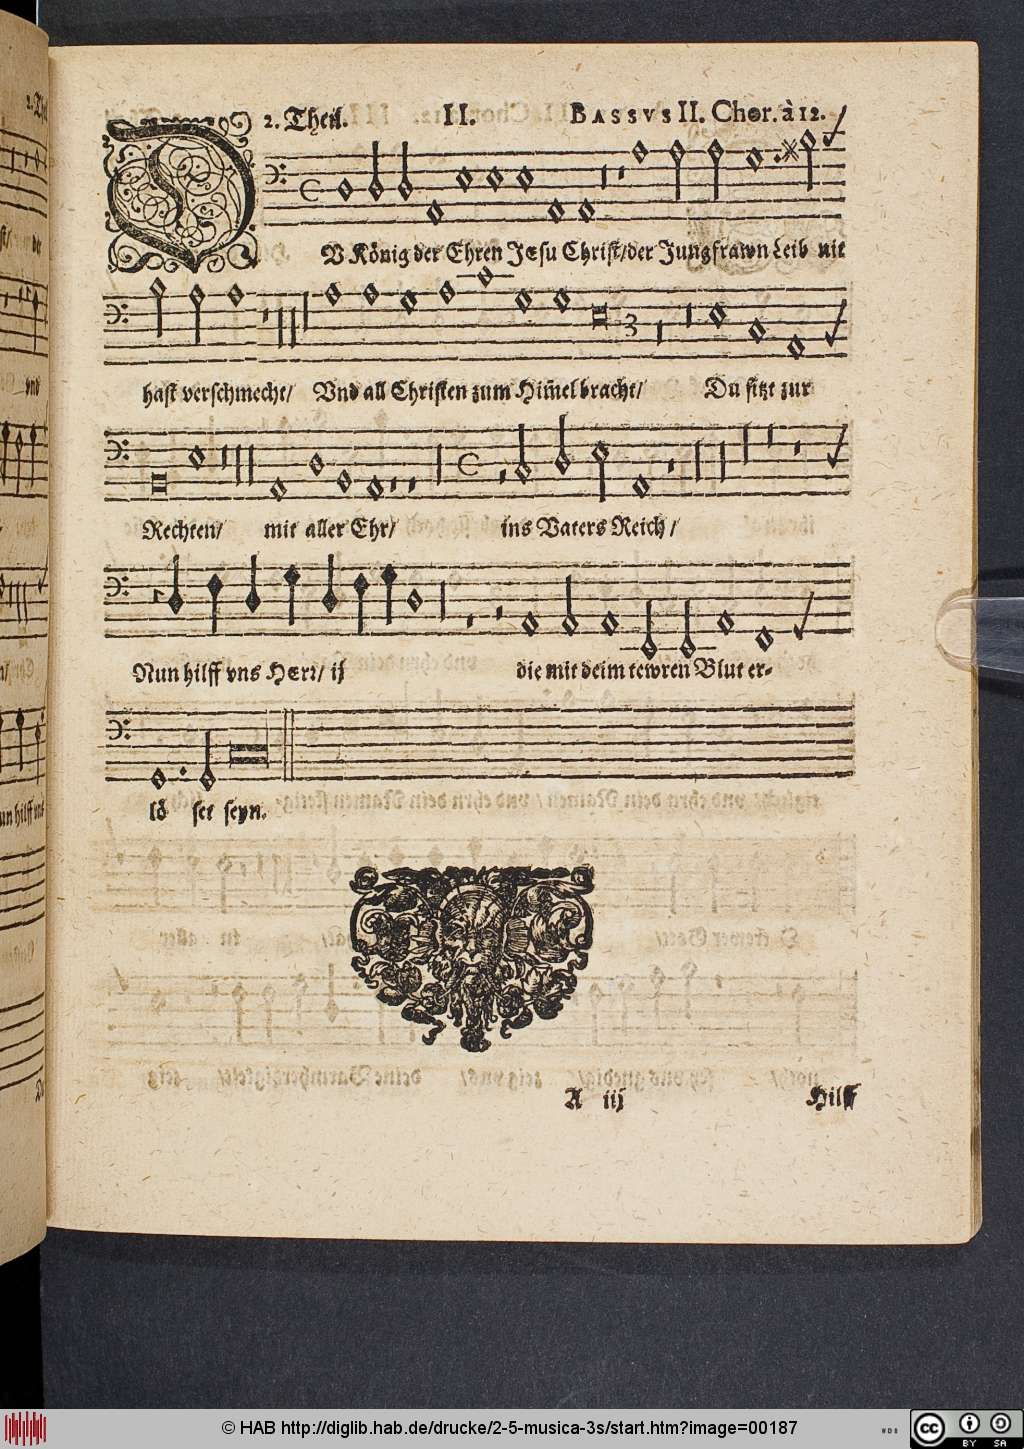 2. Theil. II. BASSVS II. Chor. à 12.
DV König der Ehren JEsu Christ/ der Jungfrawn Leib nit
hast verschmecht/ Vnd all Christen zum Him̃el bracht/ Du sitzt zur
Rechten/ mit aller Ehr/ ins Vaters Reich/
Nun hilff vns HErr/ ij die mit deim tewren Blut er-
lö set seyn.
A iij Hilff
© HAB http://diglib.hab.de/drucke/2-5-musica-3s/start.htm?image=00187
cc BY SA